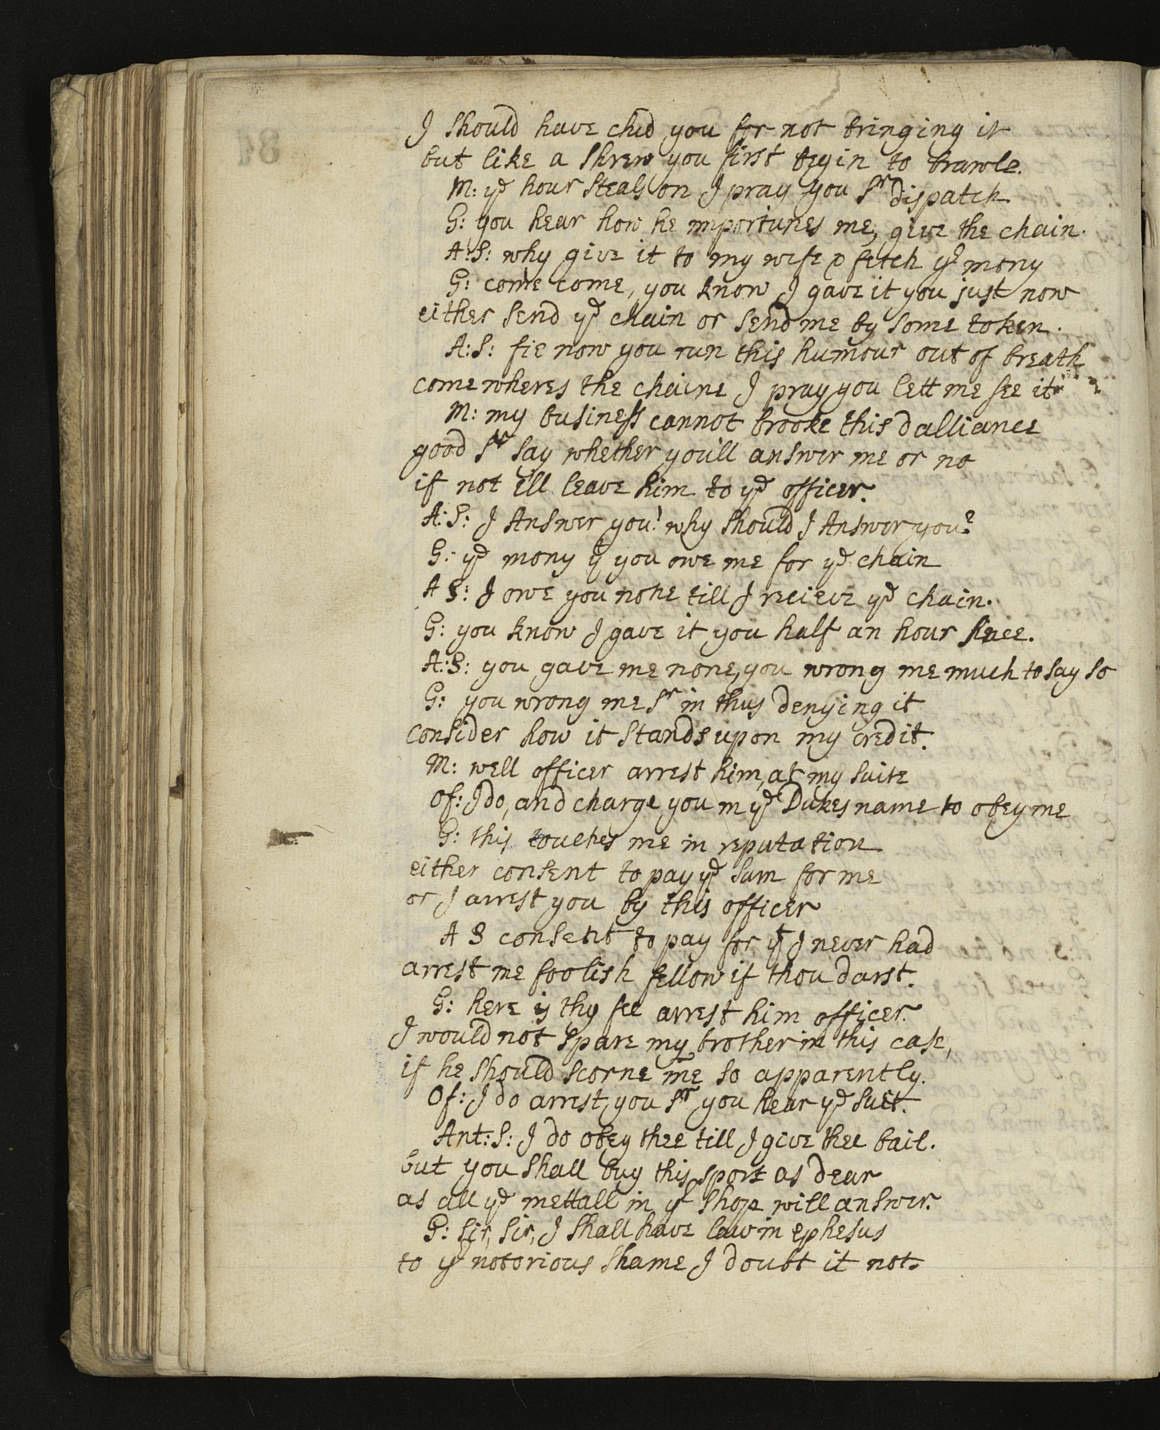 I should have chid you for not bringing it
but like a shrew you first begin to brawle.
M: yᵉ hour steals on I pray you Sʳ dispatch
G: you hear how he importunes me, give the chain.
A:S: why give it to my wife & fetch yʳ mony
G: come come, you know I gave it you just now
either send yᵉ chain or send me by some token.
A:S: fie now you run this humour out of breath
come wheres the chaine I pray you lett me see it
M: my business cannot brooke this dalliance
good Sʳ say whether you'll answer me or no
if not Ill leave him to yᵉ officer.
A:S: I Answer you! why should I Answer you?
G: yᵉ mony yᵗ you owe me for yᵉ chain
A S: I owe you none till I recieve yᵉ chain.
G: you know I gave it you half an hour since.
A:S: you gave me none, you wrong me much to say so
G: you wrong me Sʳ in thus denying it
consider how it stands upon my credit.
M: well officer arrest him, at my suite
Of: I do, and charge you in yᵉ Dukes name to obey me
G: this touches me in reputation
either consent to pay yᵉ sum for me
or I arrest you by this officer
A S consent to pay for yᵗ I never had
arrest me foolish fellow if thou darst.
G: here is thy fee arrest him officer.
I would not spare my brother in this case,
if he should scorne me so apparently.
Of: I do arrest you Sʳ you hear yᵉ suit.
Ant:S: I do obey thee till I give thee bail.
but you shall buy this sport as dear
as all yᵉ mettall in yʳ shop will answer.
G: Sir, Sir, I shall have law in ephesus
to yʳ notorious shame I doubt it not.